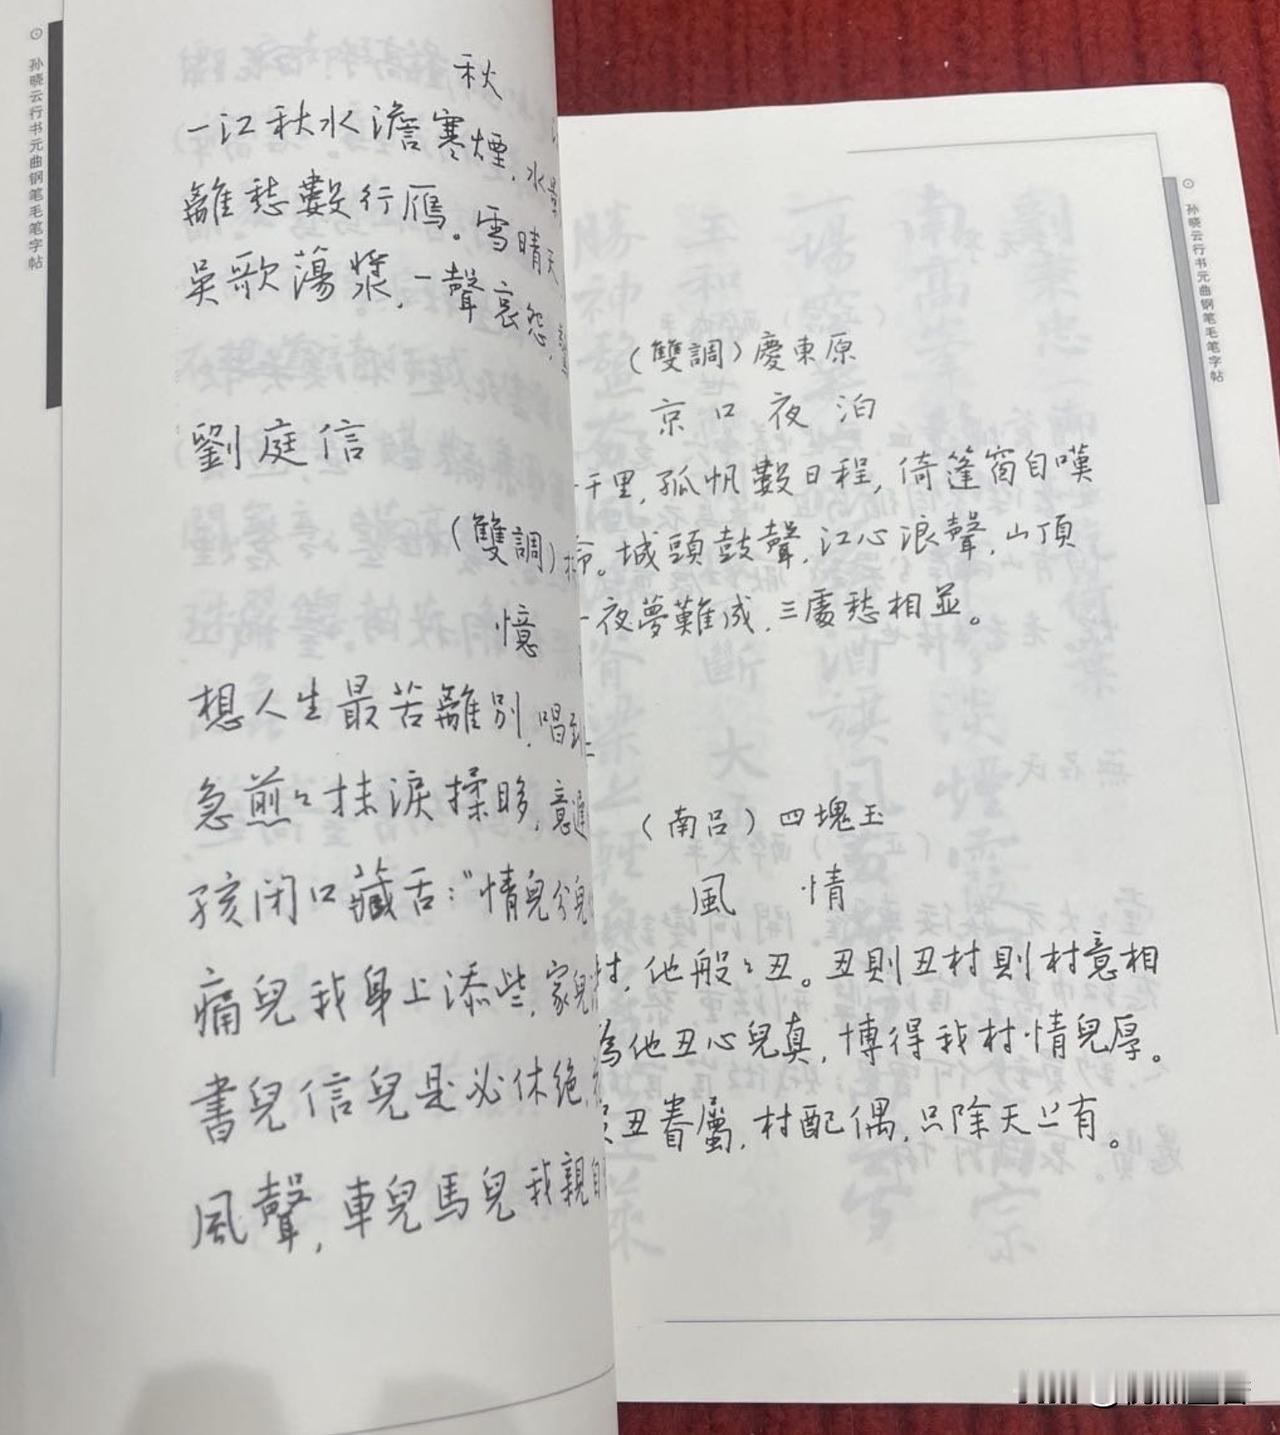 孙晓云行书元曲钢笔毛笔字帖
秋
一江秋水澹寒煙，水
離愁數行雁。雪晴天
吳歌蕩槳，一聲哀怨，
劉庭信
（雙調）
憶
想人生最苦離別，唱到
急煎々抹淚揉眵，意遲
孩閉口藏舌：“情兒分兒
痛兒我身上添些，家兒
書兒信兒是必休绝，
風聲，車兒馬兒我親自
孙晓云行书元曲钢笔毛笔字帖
（雙調）慶東原
京口夜泊
千里，孤帆數日程，倚篷窗自嘆
命。城頭鼓聲，江心浪聲，山頂
一夜夢難成，三處愁相並。
（南吕）四塊玉
風情
村，他般々丑。丑則丑村則村意相
為他丑心兒真，博得我村情兒厚。
丑眷屬，村配偶，只除天上有。